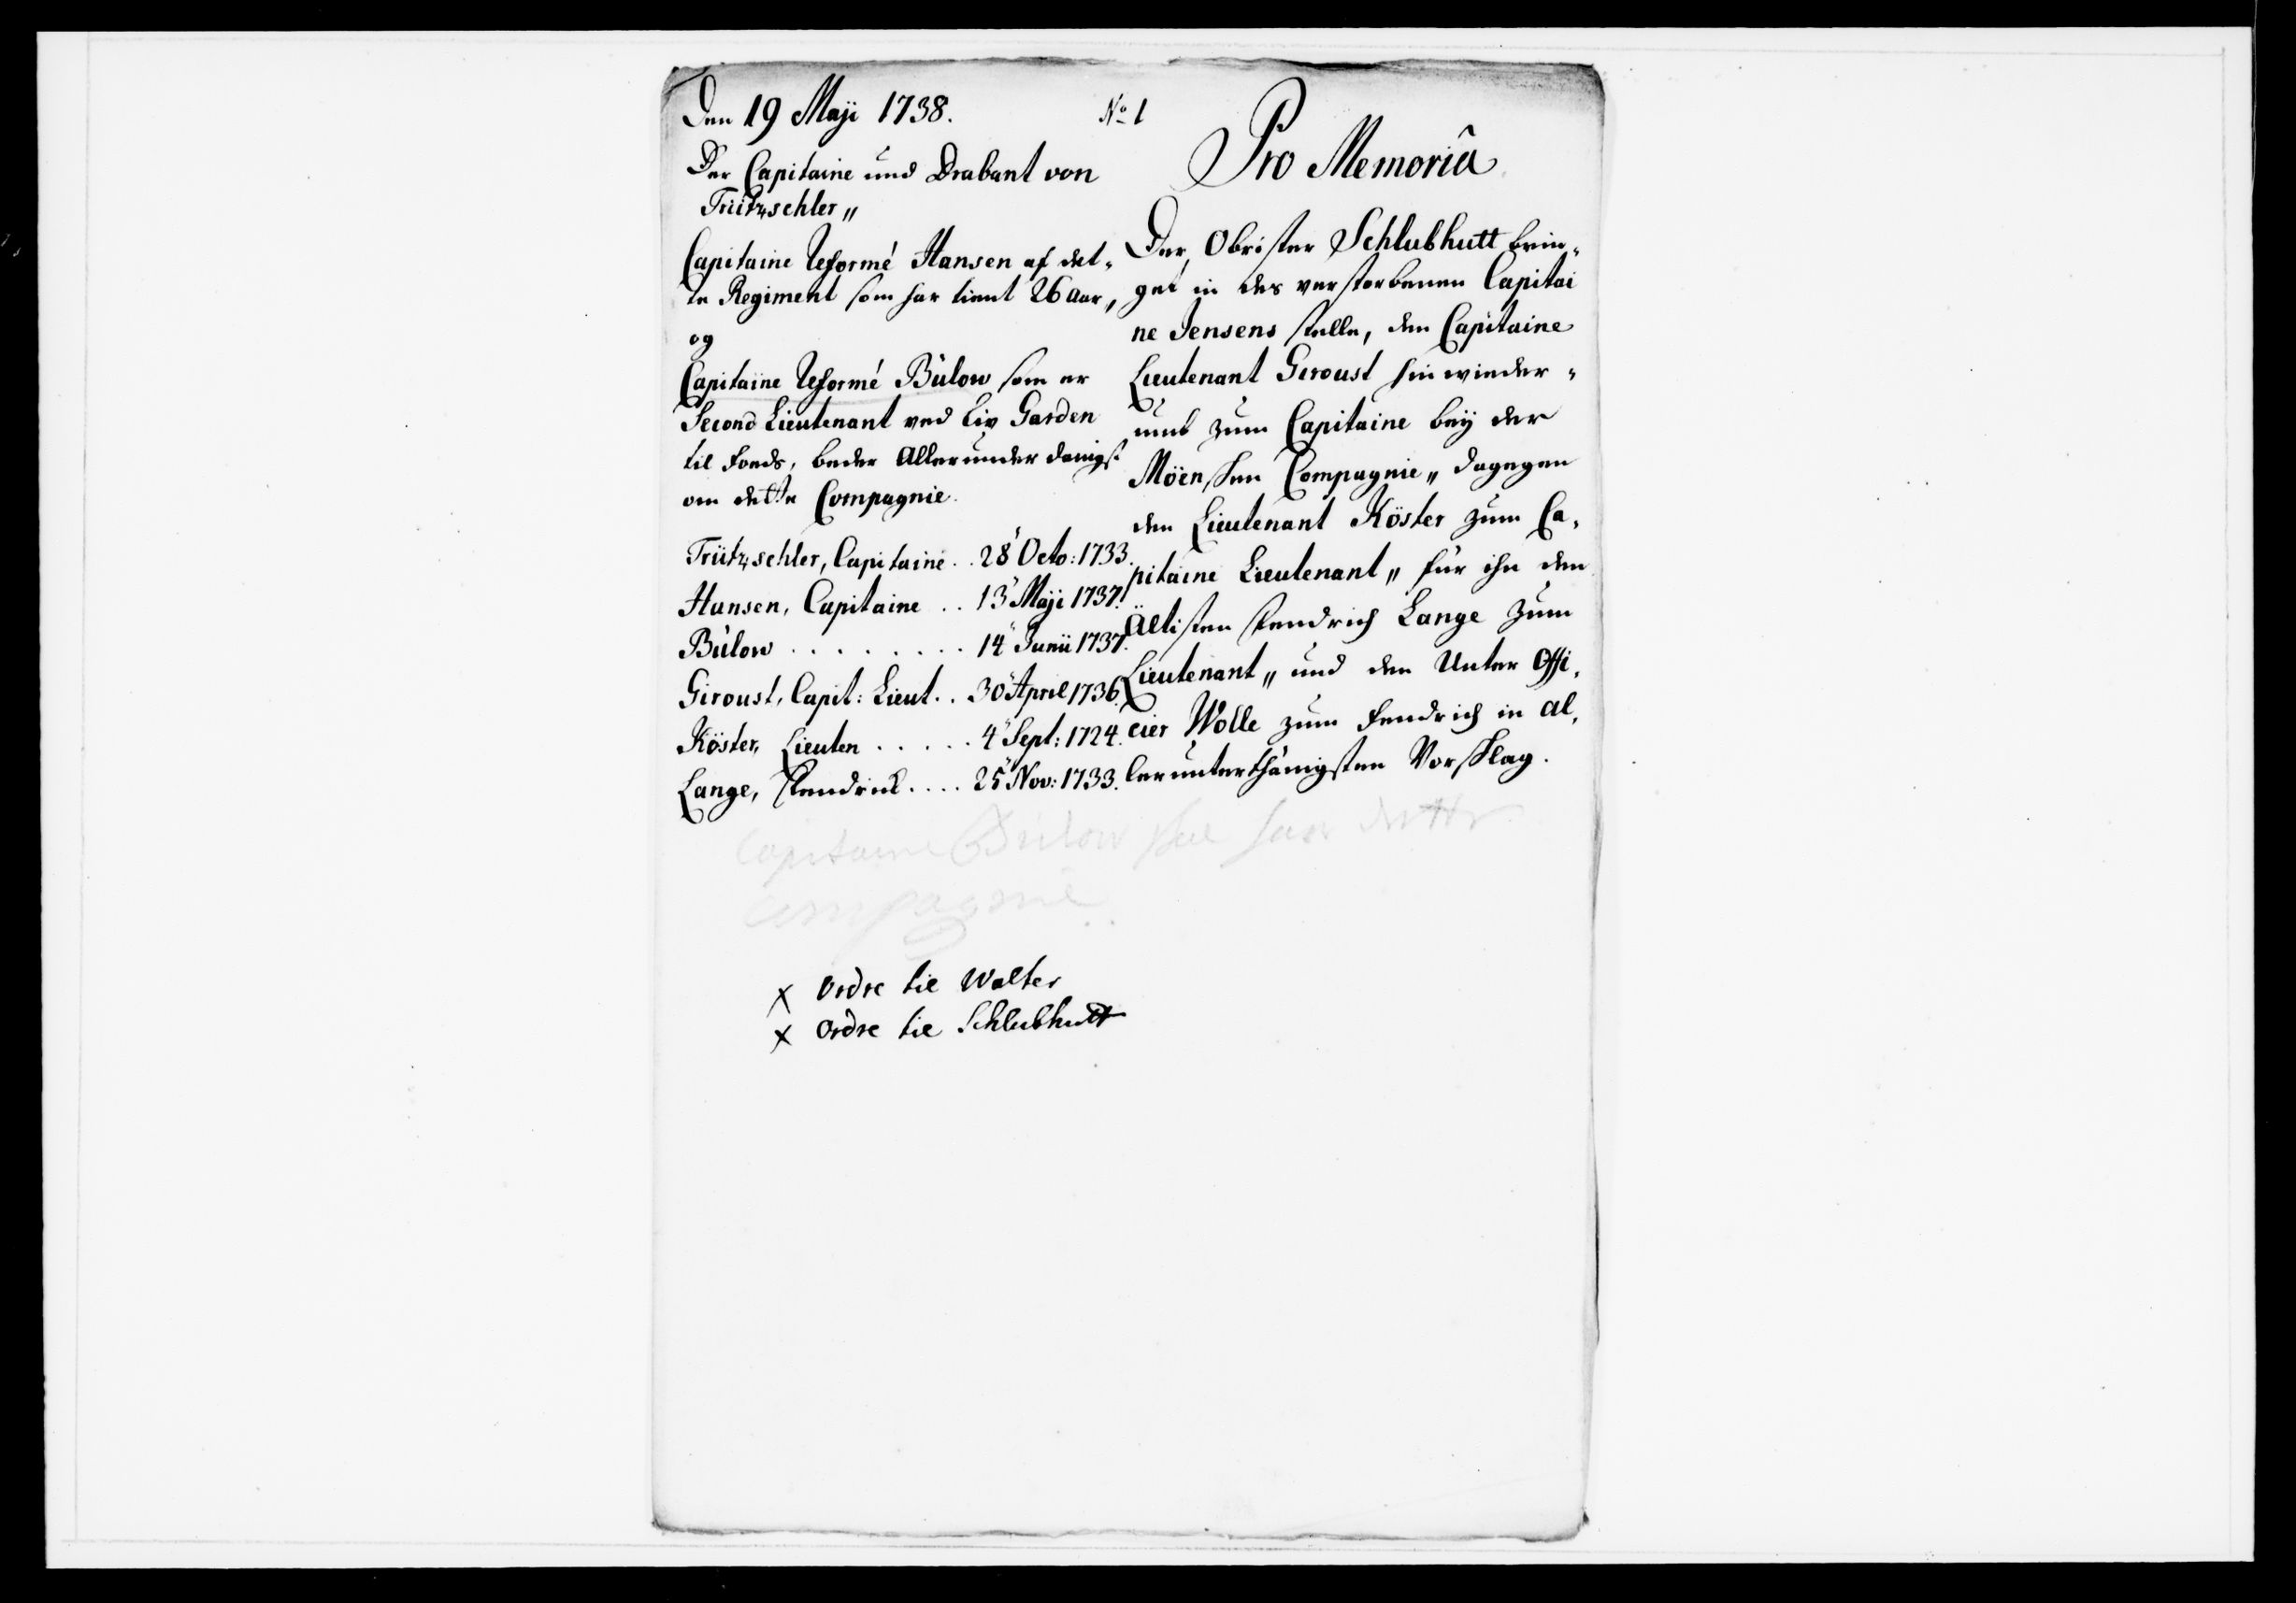 Den 19 Maji 1738.
No 1
Der Capitaine und Drabant von
Trützschler"
Capitaine Reformé Hansen af det-
te Regiment som har tient 26 aar,
og
Capitaine Reformé Bülow som er
Second Lieutenant ved Liv Garden
til Foeds, beder Allerunderdanigst
om dette Compagnie.
Trützschler, Capitaine .. 28 Octo: 1733.
Hansen, Capitaine .. 13 Maji 1737.
Bülow ........ 14 Junii 1737.
Giroust, Capit: Lieut .. 30 April 1736.
Köster, Lieuten ..... 4 Sept: 1724.
Lange, Fendrick .... 25 Nov: 1733.
Pro Memoriâ
Der Obrister Schlubhutt brin-
get in des verstorbenen Capitai
ne Jensens stelle, den Capitaine
Lieutenant Giroust hinwieder-
umb zum Capitaine beÿ der
Möenschen Compagnie" dagegen
den Lieutenant Köster zum Ca-
pitaine Lieutenant" für ihn den
Ältisten Fendrich Lange zum
Lieutenant" und den Unter Offi-
cier Wolle zum Fendrich in al-
lerunterthänigsten Vorschlag.
Capitaine Bülow skal have dette
Compagnie
x Ordre til Walter
x Ordre til Schlubhutt